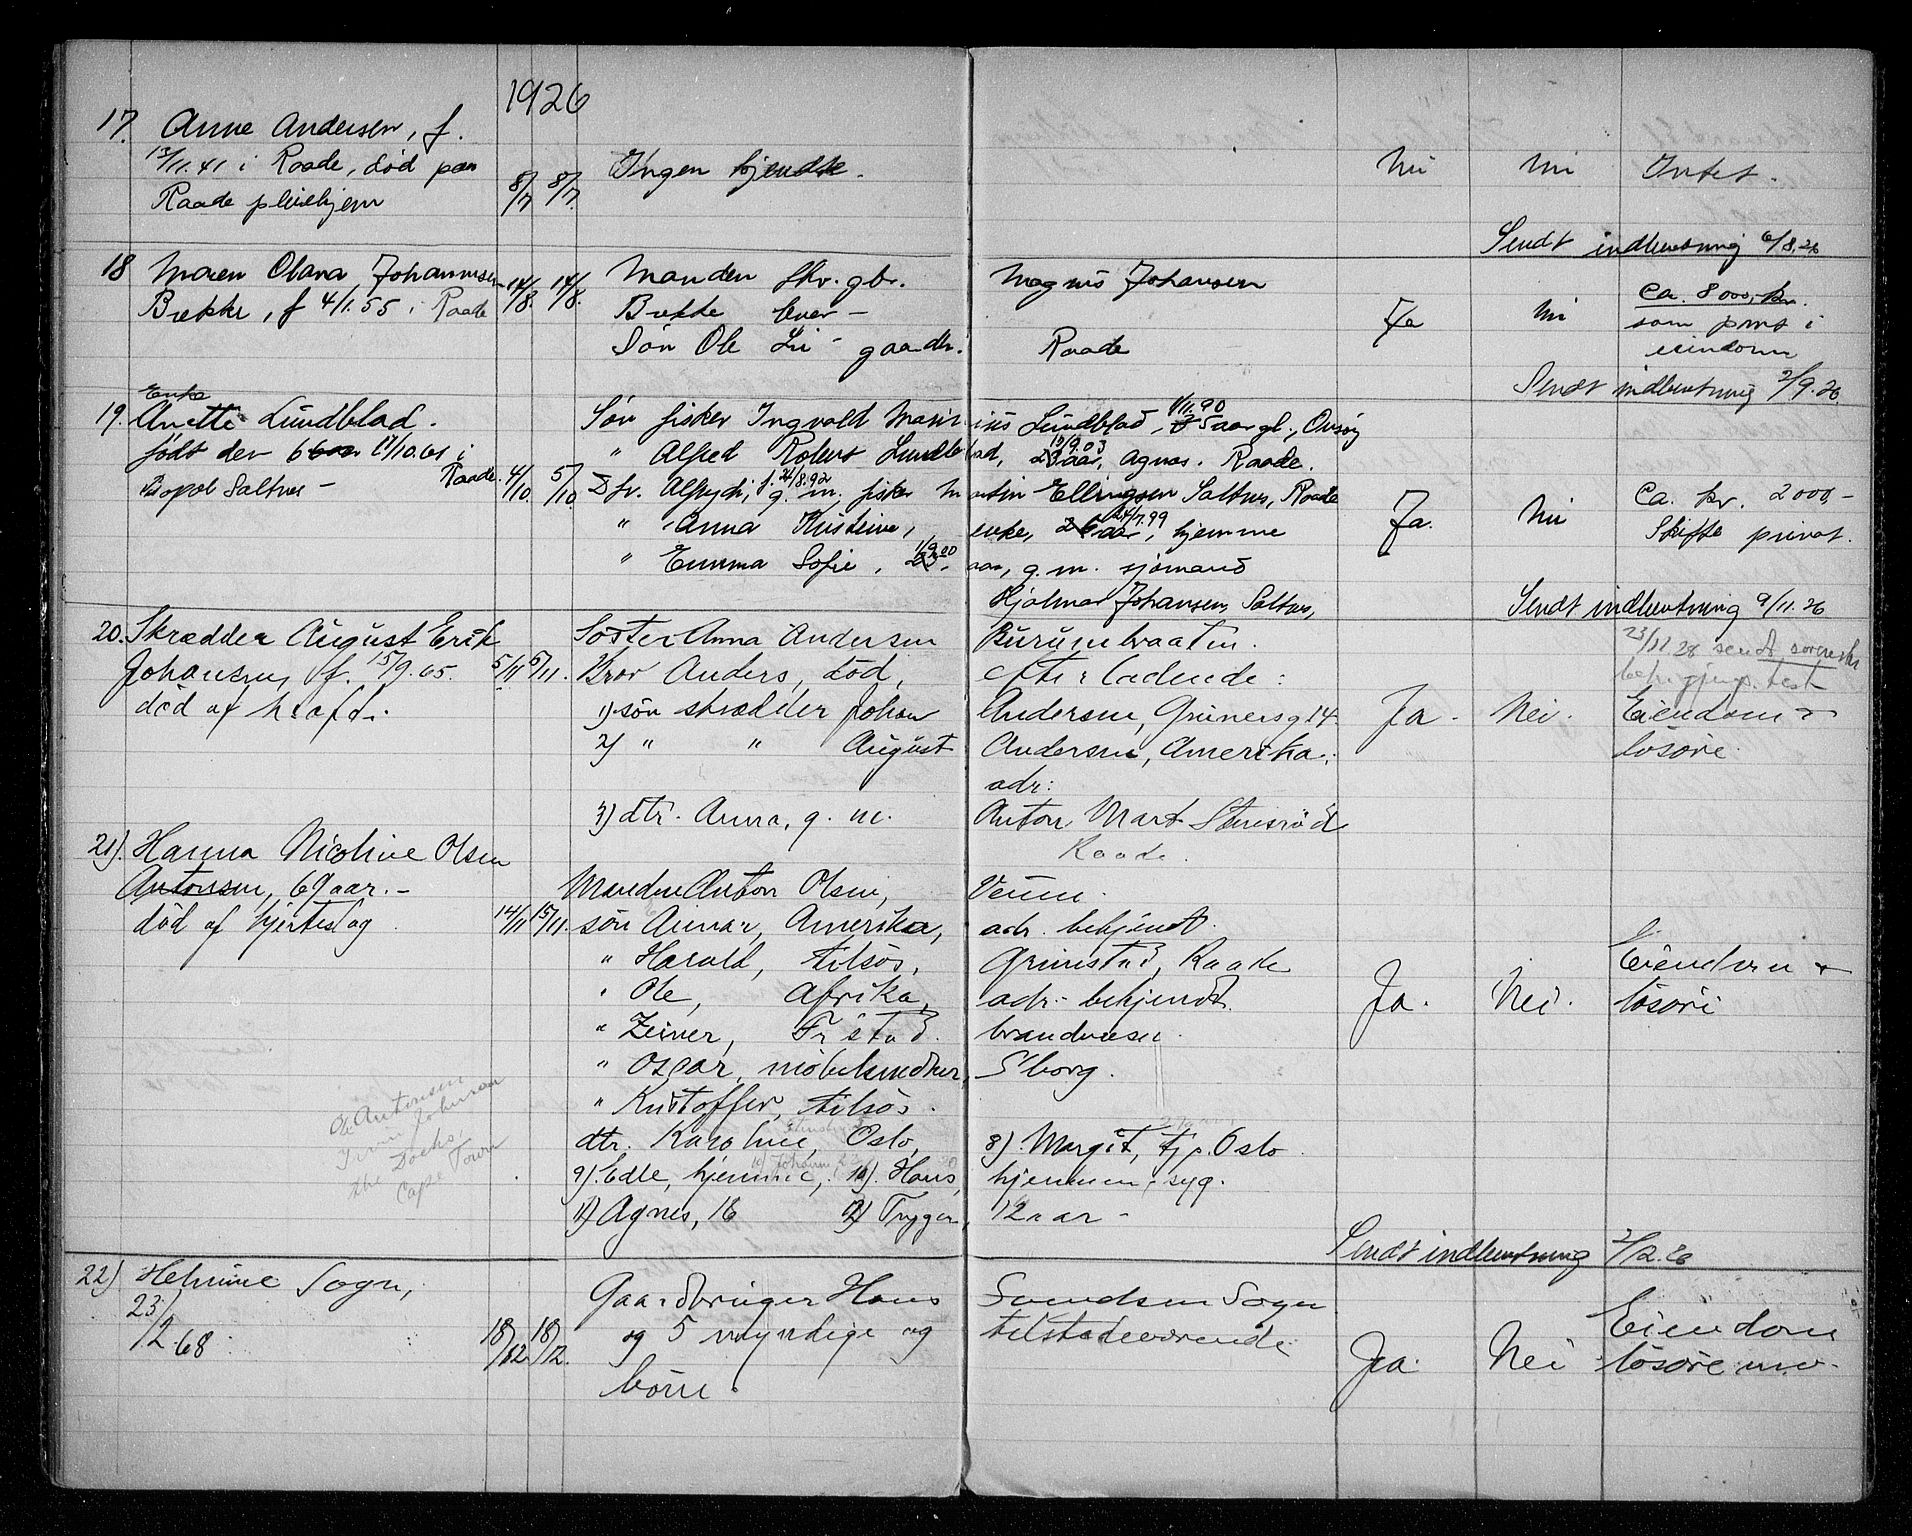 1926
17. Anne Andersen, f.
13/11.41 i Raade, død paa
Raade pleiehjem
8/7 8/7.
Ingen kjendte.
Nei Nei Intet.
Sendt indberetning 6/8.26
18 Maren Olava Johannesen
Brekke, f 4/1.55 i Raade
14/8. 14/8.
Manden fhv. gbr. Magnus Johansen
Brekke lever –
Søn Ole Li – gaardbr. Raade
Ja Nei
Ca. 8000,- kr.
som pant i
eiendom
Sendt indberetning 2/9.26
Enke
19. Anette Lundblad.
født den 17/10.61 i
Raade.
Saltnes –
4/10. 5/10.
Søn fisker Ingvald Marinius Lundblad, 1/11.90 35 aar gl., Onsøy
" Alfred Robert Lundblad, 19/9.03 23 aar, Agnes. Raade.
Dtr. f. 21/8.92 g. m. fisker Martin Ellingsen Saltnes, Raade
" Anna Kristine, enke, 26 aar, 24/7.99 hjemme
" Emma Sofie, 1/9.00 25 aar, g. m. sjømand
Hjalmar Johansen, Saltnes,
Ja. Nei
Ca. kr. 2000,-
Skifte privat.
Sendt indberetning 9/11.26
20. Skrædder August Erik
Johansen, f. 15/9.65.
død af kræft.
5/11 5/11.
Søster Anna Andersen
Bror Anders, død, efterladende:
1) søn skrædder Johan Andersen, Grünersg 14.
2) " " August Andersen, Amerika.
adr:
3) dtr. Anna, g. m. Anton Mart. Stensrød
Raade.
Ja. Nei.
23/11.28 sendt
Eiendom +
løsøre.
21). Hanna Nicoline Olsen
Antonsen, 69 aar. –
død af hjerteslag
14/11 15/11.
Manden Anton Olsen,
søn Einar, Amerika, adr. bekjendt.
" Harald, tilsjøs, Grimstad, Raade
" Ole, Afrika, adr. bekjendt.
" Zeiner, Fr.stad. brandvæsen.
" Oscar, møbelsnedker, S'borg.
" Kristoffer, tilsjøs.
dtr. Karoline, Oslo, 8). Margit, tj. Oslo.
9). Edle, hjemme, 10). Hans, hjemme, syg.
11) Agnes, 16 12) Trygve, 12 aar –
Ja. Nei.
Eiendom +
løsøre
Ole Antonsen
Johnson
the Docks
Cape Town
Sendt indberetning 7/12.26
22) Helmine Sogn,
23/2.68.
18/12. 18/12.
Gaardbruger Hans Svendsen Sogn
og 5 myndige og tilstedeværende
børn.
Ja. Nei
Eiendom
løsøre m.v.